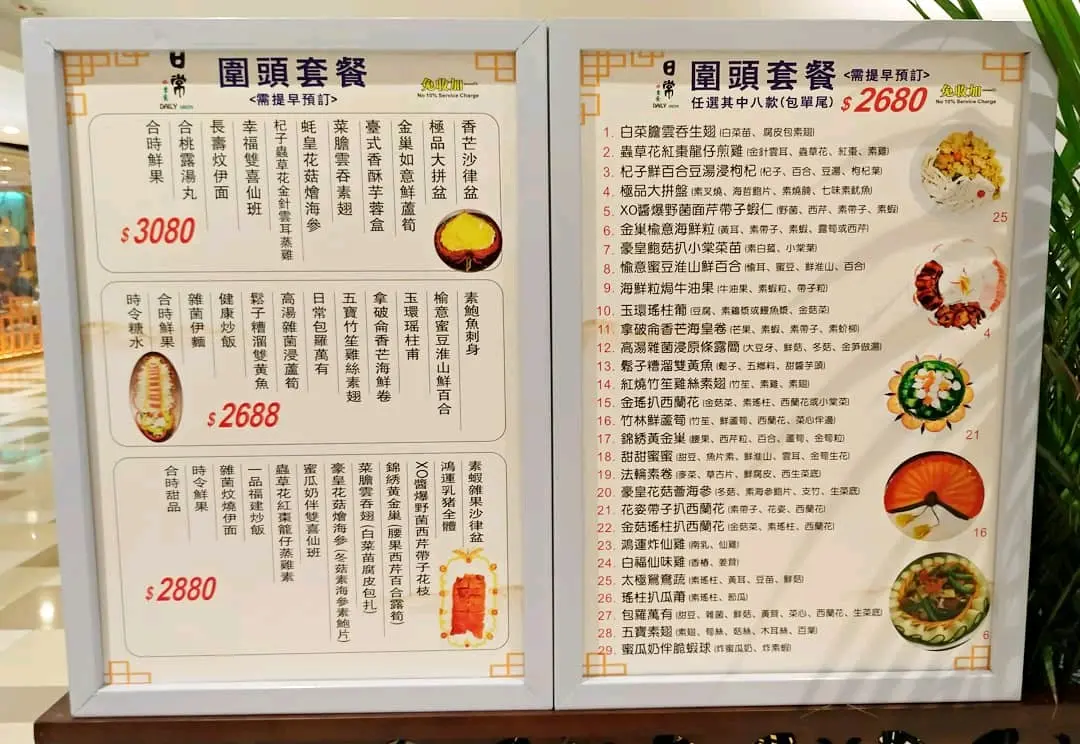 日常
素食
DAILY GREEN
圍頭套餐
<需提早預訂>
免收加一
No 10% Service Charge
香芒沙律盆
極品大拼盆
金巢如意鮮蘆筍
臺式香酥芋蓉盒
菜膽雲吞素翅
蚝皇花菇燴海參
杞子蟲草花金針雲耳蒸雞
幸福雙喜仙班
長壽炆伊面
合桃露湯丸
合時鮮果
$3080
素鮑魚刺身
榆意蜜豆淮山鮮百合
玉環瑤柱甫
拿破侖香芒海鮮卷
五寶竹笙雞絲素翅
日常包羅萬有
高湯雜菌浸蘆筍
鬆子糟溜雙黃魚
健康炒飯
雜菌伊麵
合時鮮果
時令糖水
$2688
素蝦雜果沙律盆
鴻運乳豬全體
XO醬爆野菌西芹帶子花枝
錦綉黃金巢(腰果西芹百合露筍)
菜膽雲吞翅(白菜苗腐皮包扎)
豪皇花菇燴海參(冬菇素海參素鮑片)
蜜瓜奶伴雙喜仙班
蟲草花紅棗龍仔蒸雞素
一品福建炒飯
雜菌炆燒伊面
時令鮮果
合時甜品
$2880
日常
DAILY GREEN
圍頭套餐
<需提早預訂>
任選其中八款(包單尾) $2680
免收加一
No 10% Service Charge
1. 白菜膽雲吞生翅 (白菜苗、腐皮包素翅)
2. 蟲草花紅棗龍仔煎雞 (金針雲耳、蟲草花、紅棗、素雞)
3. 杞子鮮百合豆湯浸枸杞 (杞子、百合、豆湯、枸杞葉)
4. 極品大拼盤 (素叉燒、海哲鮑片、素燒腩、七味素魷魚)
5. XO醬爆野菌面芹帶子蝦仁 (野菌、西芹、素帶子、素蝦)
6. 金巢榆意海鮮粒 (黃耳、素帶子、素蝦、露筍或西芹)
7. 豪皇鮑菇扒小棠菜苗 (素白菇、小棠葉)
8. 榆意蜜豆淮山鮮百合 (榆耳、蜜豆、鮮淮山、百合)
9. 海鮮粒焗牛油果 (牛油果、素蝦粒、帶子粒)
10. 玉環瑤柱葡 (豆腐、素雞漿或鰻魚漿、金菇菜)
11. 拿破侖香芒海皇卷 (芒果、素蝦、素帶子、素蚧柳)
12. 高湯雜菌浸原條露筒 (大豆牙、鮮菇、冬菇、金笋做湯)
13. 鬆子糟溜雙黃魚 (鬆子、五鄉料、甜醬芋頭)
14. 紅燒竹笙雞絲素翅 (竹笙、素雞、素翅)
15. 金瑤扒西蘭花 (金菇菜、素瑤柱、西蘭花或小棠菜)
16. 竹林鮮蘆筍 (竹笙、鮮蘆筍、西蘭花、菜心伴邊)
17. 錦綉黃金巢 (腰果、西芹粒、百合、蘆筍、金筍粒)
18. 甜甜蜜蜜 (甜豆、魚片素、鮮淮山、雲耳、金筍生花)
19. 法輪素卷 (麥菜、草古片、鮮腐皮、西生菜底)
20. 豪皇花菇薈海參 (冬菇、素海參鮑片、支竹、生菜底)
21. 花姿帶子扒西蘭花 (素帶子、花姿、西蘭花)
22. 金菇瑤柱扒西蘭花 (金菇菜、素瑤柱、西蘭花)
23. 鴻運炸仙雞 (南乳、仙雞)
24. 白福仙味雞 (香椿、姜茸)
25. 太極鴛鴦蔬 (素瑤柱、黃耳、豆苗、鮮菇)
26. 瑤柱扒瓜莆 (素瑤柱、節瓜)
27. 包羅萬有 (甜豆、雜菌、鮮菇、黃茸、菜心、西蘭花、生菜底)
28. 五寶素翅 (素翅、筍絲、菇絲、木耳絲、百葉)
29. 蜜瓜奶伴脆蝦球 (炸蜜瓜奶、炸素蝦)
25
4
21
16
6